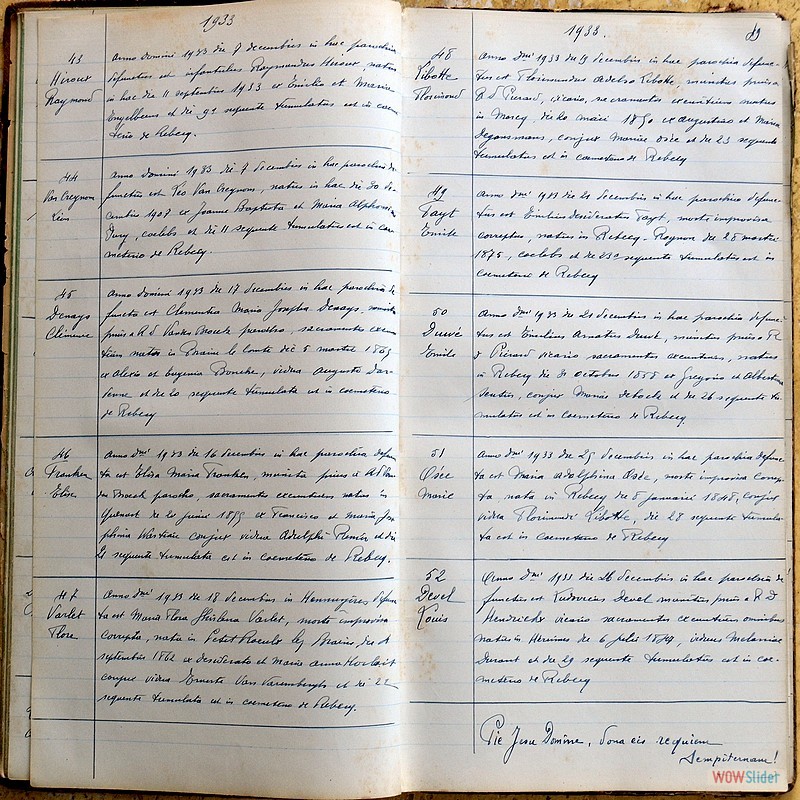 1933
43
Hiroux
Raymond
Anno Domini 1933 die 7 decembris in hac parochia
defunctus est infantulus Raymundus Hiroux natus
in hac die 11 septembris 1933 ex Emilio et Maria
Engelbeens et die 9a sequente tumulatus est in coeme-
terio de Rebecq.
44
Van Creynom
Léon
Anno Domini 1933 die 7 decembris in hac parochia de-
functus est Leo Van Creynom, natus in hac die 20 de-
cembris 1907 ex Joanne Baptista et Maria Alphonsina
Jury, caelebs et die 11 sequente tumulatus est in coe-
meterio de Rebecq.
45
Denays
Clémence
Anno Domini 1933 die 17 decembris in hac parochia de-
functa est Clementia Maria Josepha Denays, munita
prius a R. D. parocho, sacramentis exeun-
tium nata in Braine le Comte die 5 martii 1849
ex Alexio et Eugenia vidua Augusto
et die 20 sequente tumulata est in coemeterio
de Rebecq
46
Franken
Elise
Anno Dni 1933 die 16 decembris in hac parochia defunc-
ta est Elisa Maria Franken, munita prius a R. D. Van
den Broeck parocho, sacramentis exeuntium nata in
Quenast die 20 junii 1899 ex Francisco et Maria Jo-
sephina conjux vidua Adelphi et die
21 sequente tumulata est in coemeterio de Rebecq.
47
Varlet
Flore
Anno Dni 1933 die 18 decembris in Hennuyères defunc-
ta est Maria Flora Ghislena Varlet, morte improvisa
correpta, nata in Petit Roeulx lez Braine, die 1
septembris 1862 ex Desiderato et Maria Anna
conjux vidua Ernesti Van Varembergh et die 22
sequente tumulata est in coemeterio de Rebecq.
1933.
48
Ribotte
Florimond
Anno Dni 1933 die 19 decembris in hac parochia defunc-
tus est Florimundus Adelso Ribotte, munitus prius a
R. D Pierard, vicario, sacramentis exeuntium natus
in Marcq die 20 maii 1850 ex Augustino et Maria
conjux Mariae Osée et die 23 sequente
tumulatus est in coemeterio de Rebecq
49
Tayt
Emile
Anno Dni 1933 die 21 decembris in hac parochia defunc-
tus est Emilius Desideratus Tayt, morte improvisa
correptus, natus in Rebecq-Rognon die 28 martii
1875, caelebs et die 23a sequente tumulatus est in
coemeterio de Rebecq
50
Duvé
Emile
Anno Dni 1933 die 21 decembris in hac parochia defunc-
tus est Emilius Amatus Duvé, munitus prius a R
D Pierard vicario sacramentis exeuntium, natus
in Rebecq die 31 octobris 1858 ex Gregorio et Albertina
conjux Mariae et die 26 sequente tu-
mulatus est in coemeterio de Rebecq.
51
Osée
Marie
Anno Dni 1933 die 25 decembris in hac parochia defunc-
ta est Maria Adolphina Osée, morte improvisa correp-
ta, nata in Rebecq die 8 januarii 1848, conjux
vidua Florimundi Ribotte, die 28 sequente tumula-
ta est in coemeterio de Rebecq
52
Devel
Louis
Anno Dni 1933 die 26 decembris in hac parochia de-
functus est Ludovicus Devel munitus prius a R. D
Hendrickx vicario sacramentis exeuntium omnibus
natus in Herinnes die 6 julii 1879, viduus Melaniae
Durant et die 29 sequente tumulatus est in coe-
meterio de Rebecq
Pie Jesu Domine, dona eis requiem
Sempiternam!
WOWSlider